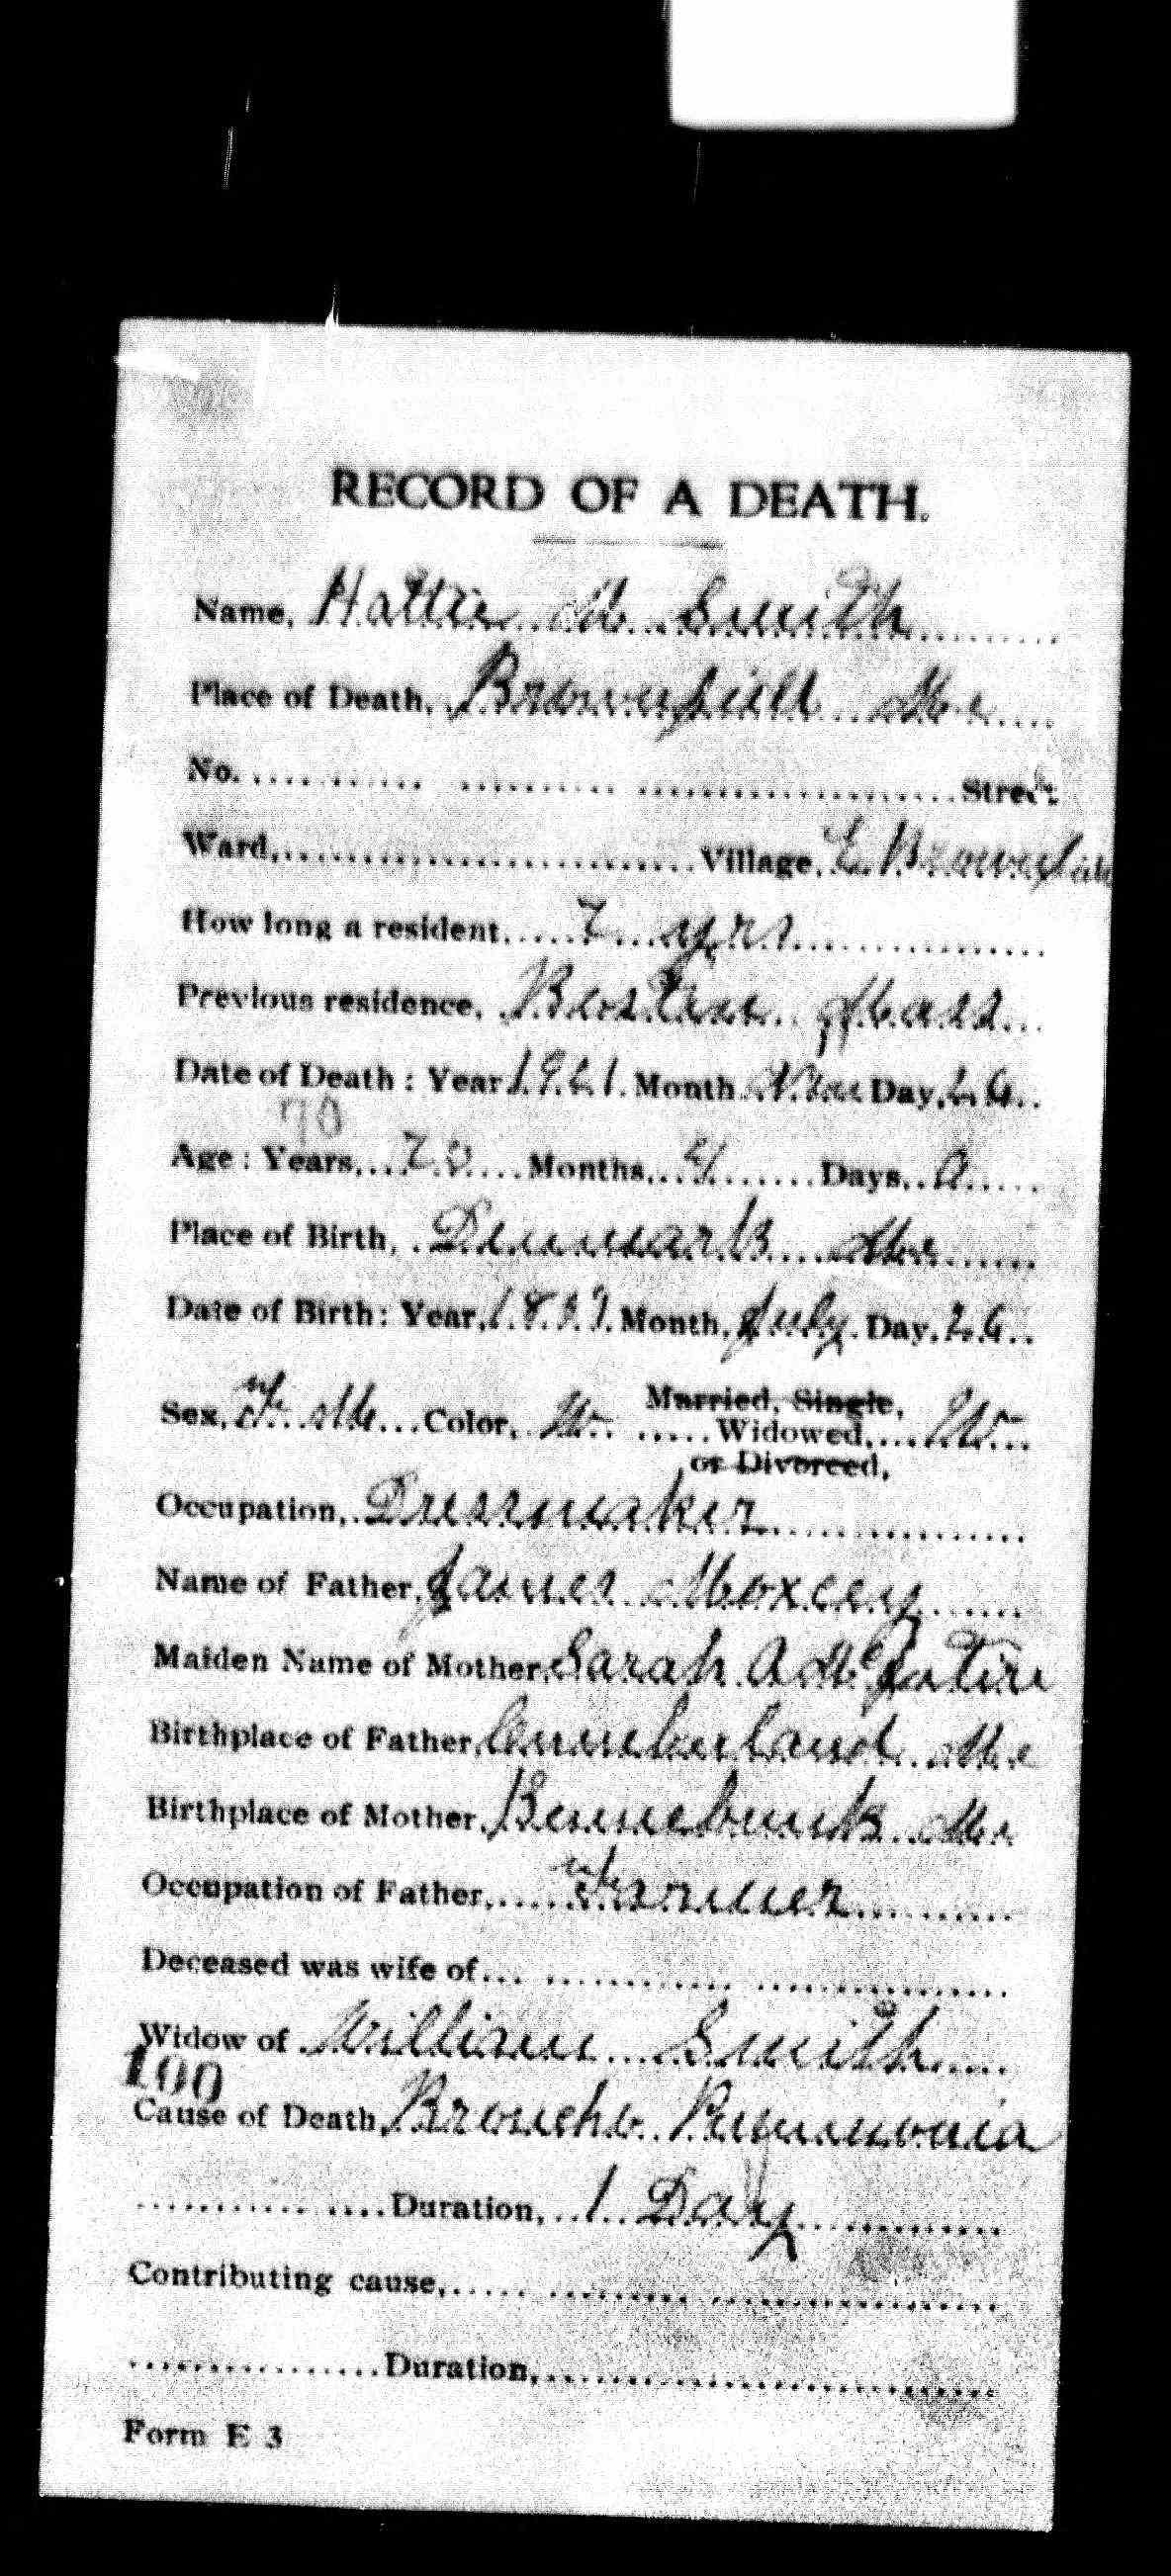 RECORD OF A DEATH.
Name, Hattie M Smith
Place of Death, Brownfield Me
No. Street
Ward, Village, E. Brownfield
How long a resident, 7 yrs
Previous residence, Boston Mass
Date of Death: Year 1921 Month Nov Day, 26
70
Age: Years, 70 Months, 4 Days, 0
Place of Birth, Denmark Me
Date of Birth: Year, Month, July Day, 26
Married, Single,
Sex, Fe Me Color, W Widowed, W
or Divorced,
Occupation, Dressmaker
Name of Father, James Moxcey
Maiden Name of Mother, Sarah A McIntire
Birthplace of Father, Cumberland Me
Birthplace of Mother, Kennebunk Me
Occupation of Father, Farmer
Deceased was wife of
Widow of William Smith
100
Cause of Death, Broncho Pneumonia
Duration, 1 Day
Contributing cause,
Duration,
Form E 3